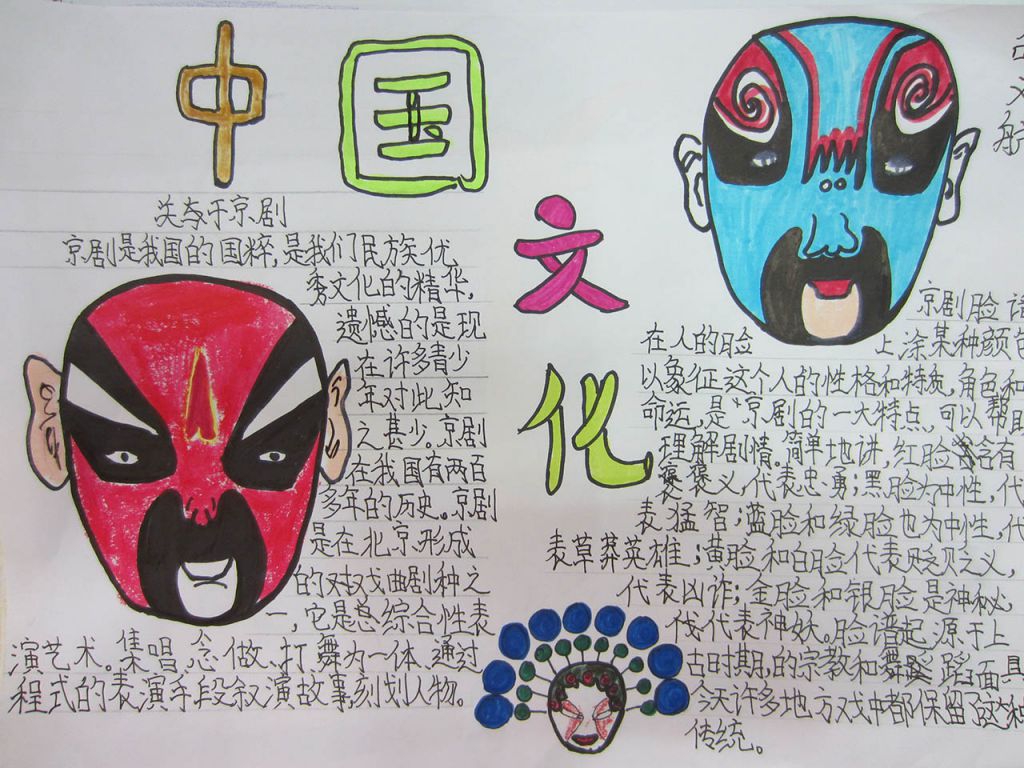 中国
文
化
关与于京剧
京剧是我国的国粹,是我们民族优
秀文化的精华,
遗憾的是现
在许多青少
年对此知
之甚少。京剧
在我国有两百
多年的历史。京剧
是在北京形成
的戏曲剧种之
一,它是总综合性表
演艺术。集唱、念、做、打、舞为一体、通过
程式的表演手段叙演故事,刻划人物。
京剧脸谱
在人的脸上涂某种颜色
以象征这个人的性格和特质,角色和
命运,是京剧的一大特点,可以帮助
理解剧情。简单地讲,红脸含有
褒义,代表忠勇;黑脸为中性,代
表猛智;蓝脸和绿脸也为中性,代
表草莽英雄;黄脸和白脸代表贬义,
代表凶诈;金脸和银脸是神秘,
代表神妖。脸谱起源于上
古时期的宗教和舞蹈面具
今天许多地方戏中都保留了这种
传统。